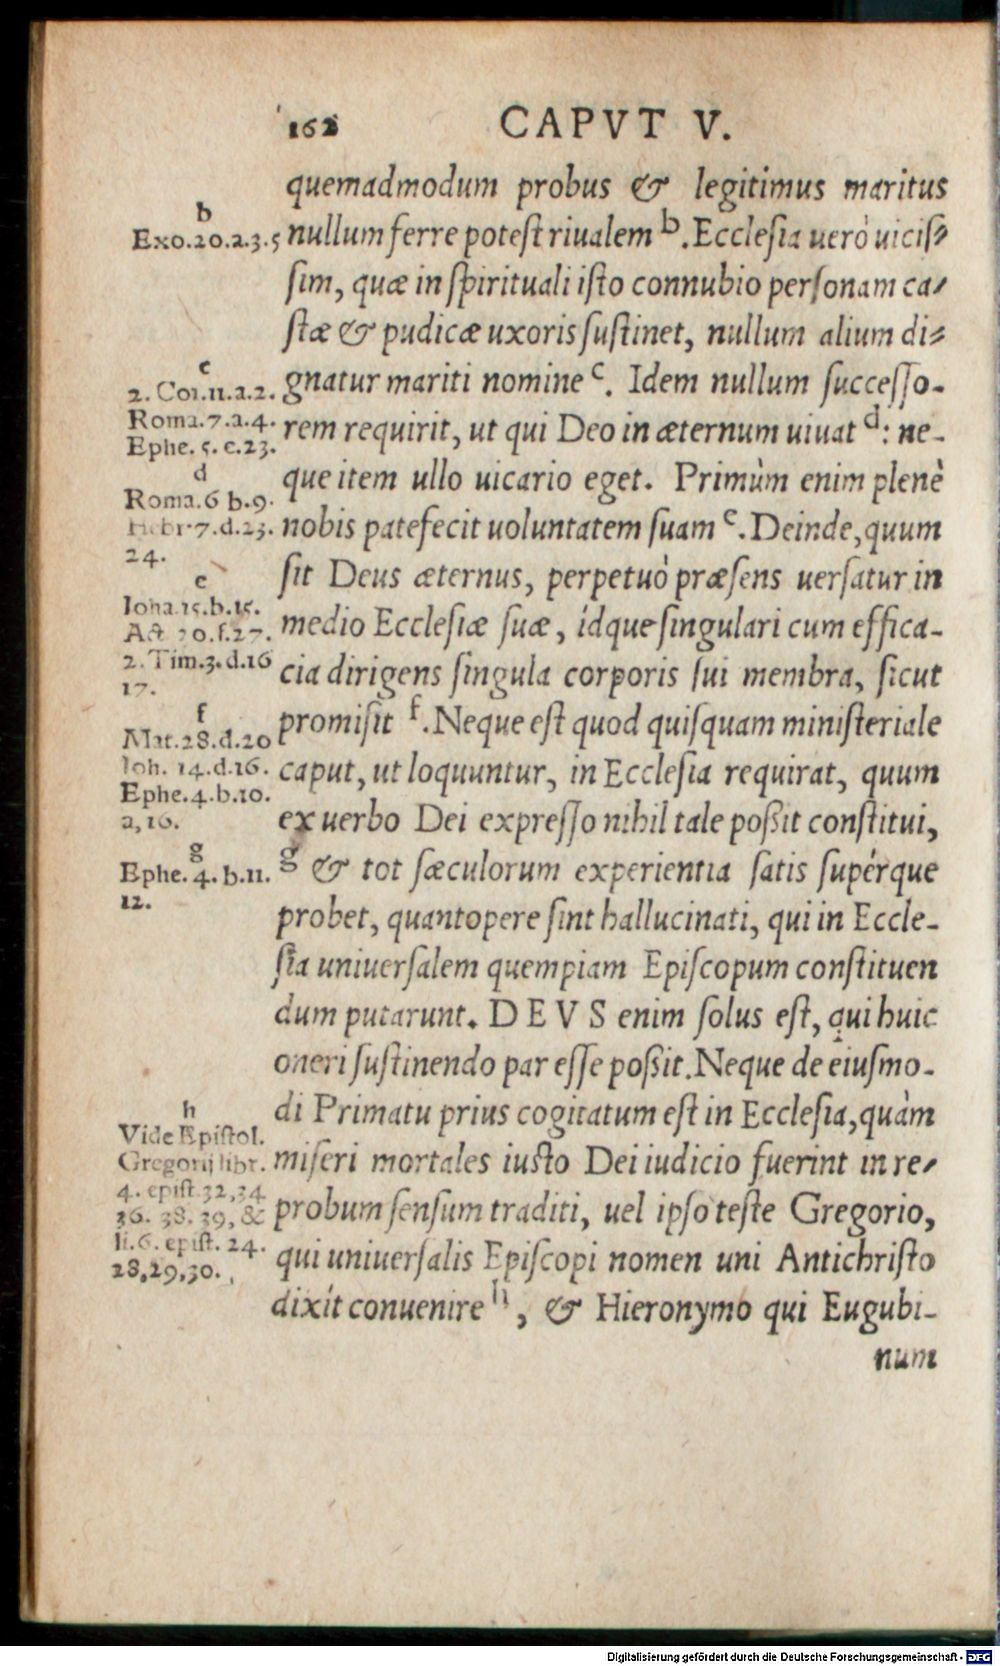 162 CAPVT V.
quemadmodum probus & legitimus maritus
nullum ferre potest riualem b. Ecclesia uerò uicis-
sim, quæ in spirituali isto connubio personam ca-
stæ & pudicæ uxoris sustinet, nullum alium di-
gnatur mariti nomine c. Idem nullum successo-
rem requirit, ut qui Deo in æternum uiuat d: ne-
que item ullo uicario eget. Primùm enim plenè
nobis patefecit uoluntatem suam e. Deinde, quum
sit Deus æternus, perpetuò præsens uersatur in
medio Ecclesiæ suæ, ídque singulari cum effica-
cia dirigens singula corporis sui membra, sicut
promisit f. Neque est quod quisquam ministeriale
caput, ut loquuntur, in Ecclesia requirat, quum
ex uerbo Dei expresso nihil tale possit constitui,
g & tot sæculorum experientia satis supérque
probet, quantopere sint hallucinati, qui in Eccle-
sia uniuersalem quempiam Episcopum constituen
dum putarunt. DEVS enim solus est, qui huic
oneri sustinendo par esse possit. Neque de eiusmo-
di Primatu prius cogitatum est in Ecclesia, quàm
miseri mortales iusto Dei iudicio fuerint in re-
probum sensum traditi, uel ipso teste Gregorio,
qui uniuersalis Episcopi nomen uni Antichristo
dixit conuenire h, & Hieronymo qui Eugubi-
num
b
Exo.20.a.3.5
c
2. Cor.11.a.2.
Roma.7.a.4.
Ephe. 5. e.23.
d
Roma.6 b.9.
Hebr.7.d.23.
24.
e
Ioha.15.b.15.
Act 20.f.27.
2. Tim.3.d.16
17.
f
Mat.28.d.20
Ioh. 14.d.16.
Ephe.4.b.10.
a,16.
g
Ephe. 4. b.11.
12.
h
Vide Epistol.
Gregorij libr.
4. epist.32,34
36. 38. 39, &
li.6. epist. 24.
28,29,30.
Digitalisierung gefördert durch die Deutsche Forschungsgemeinschaft - DFG